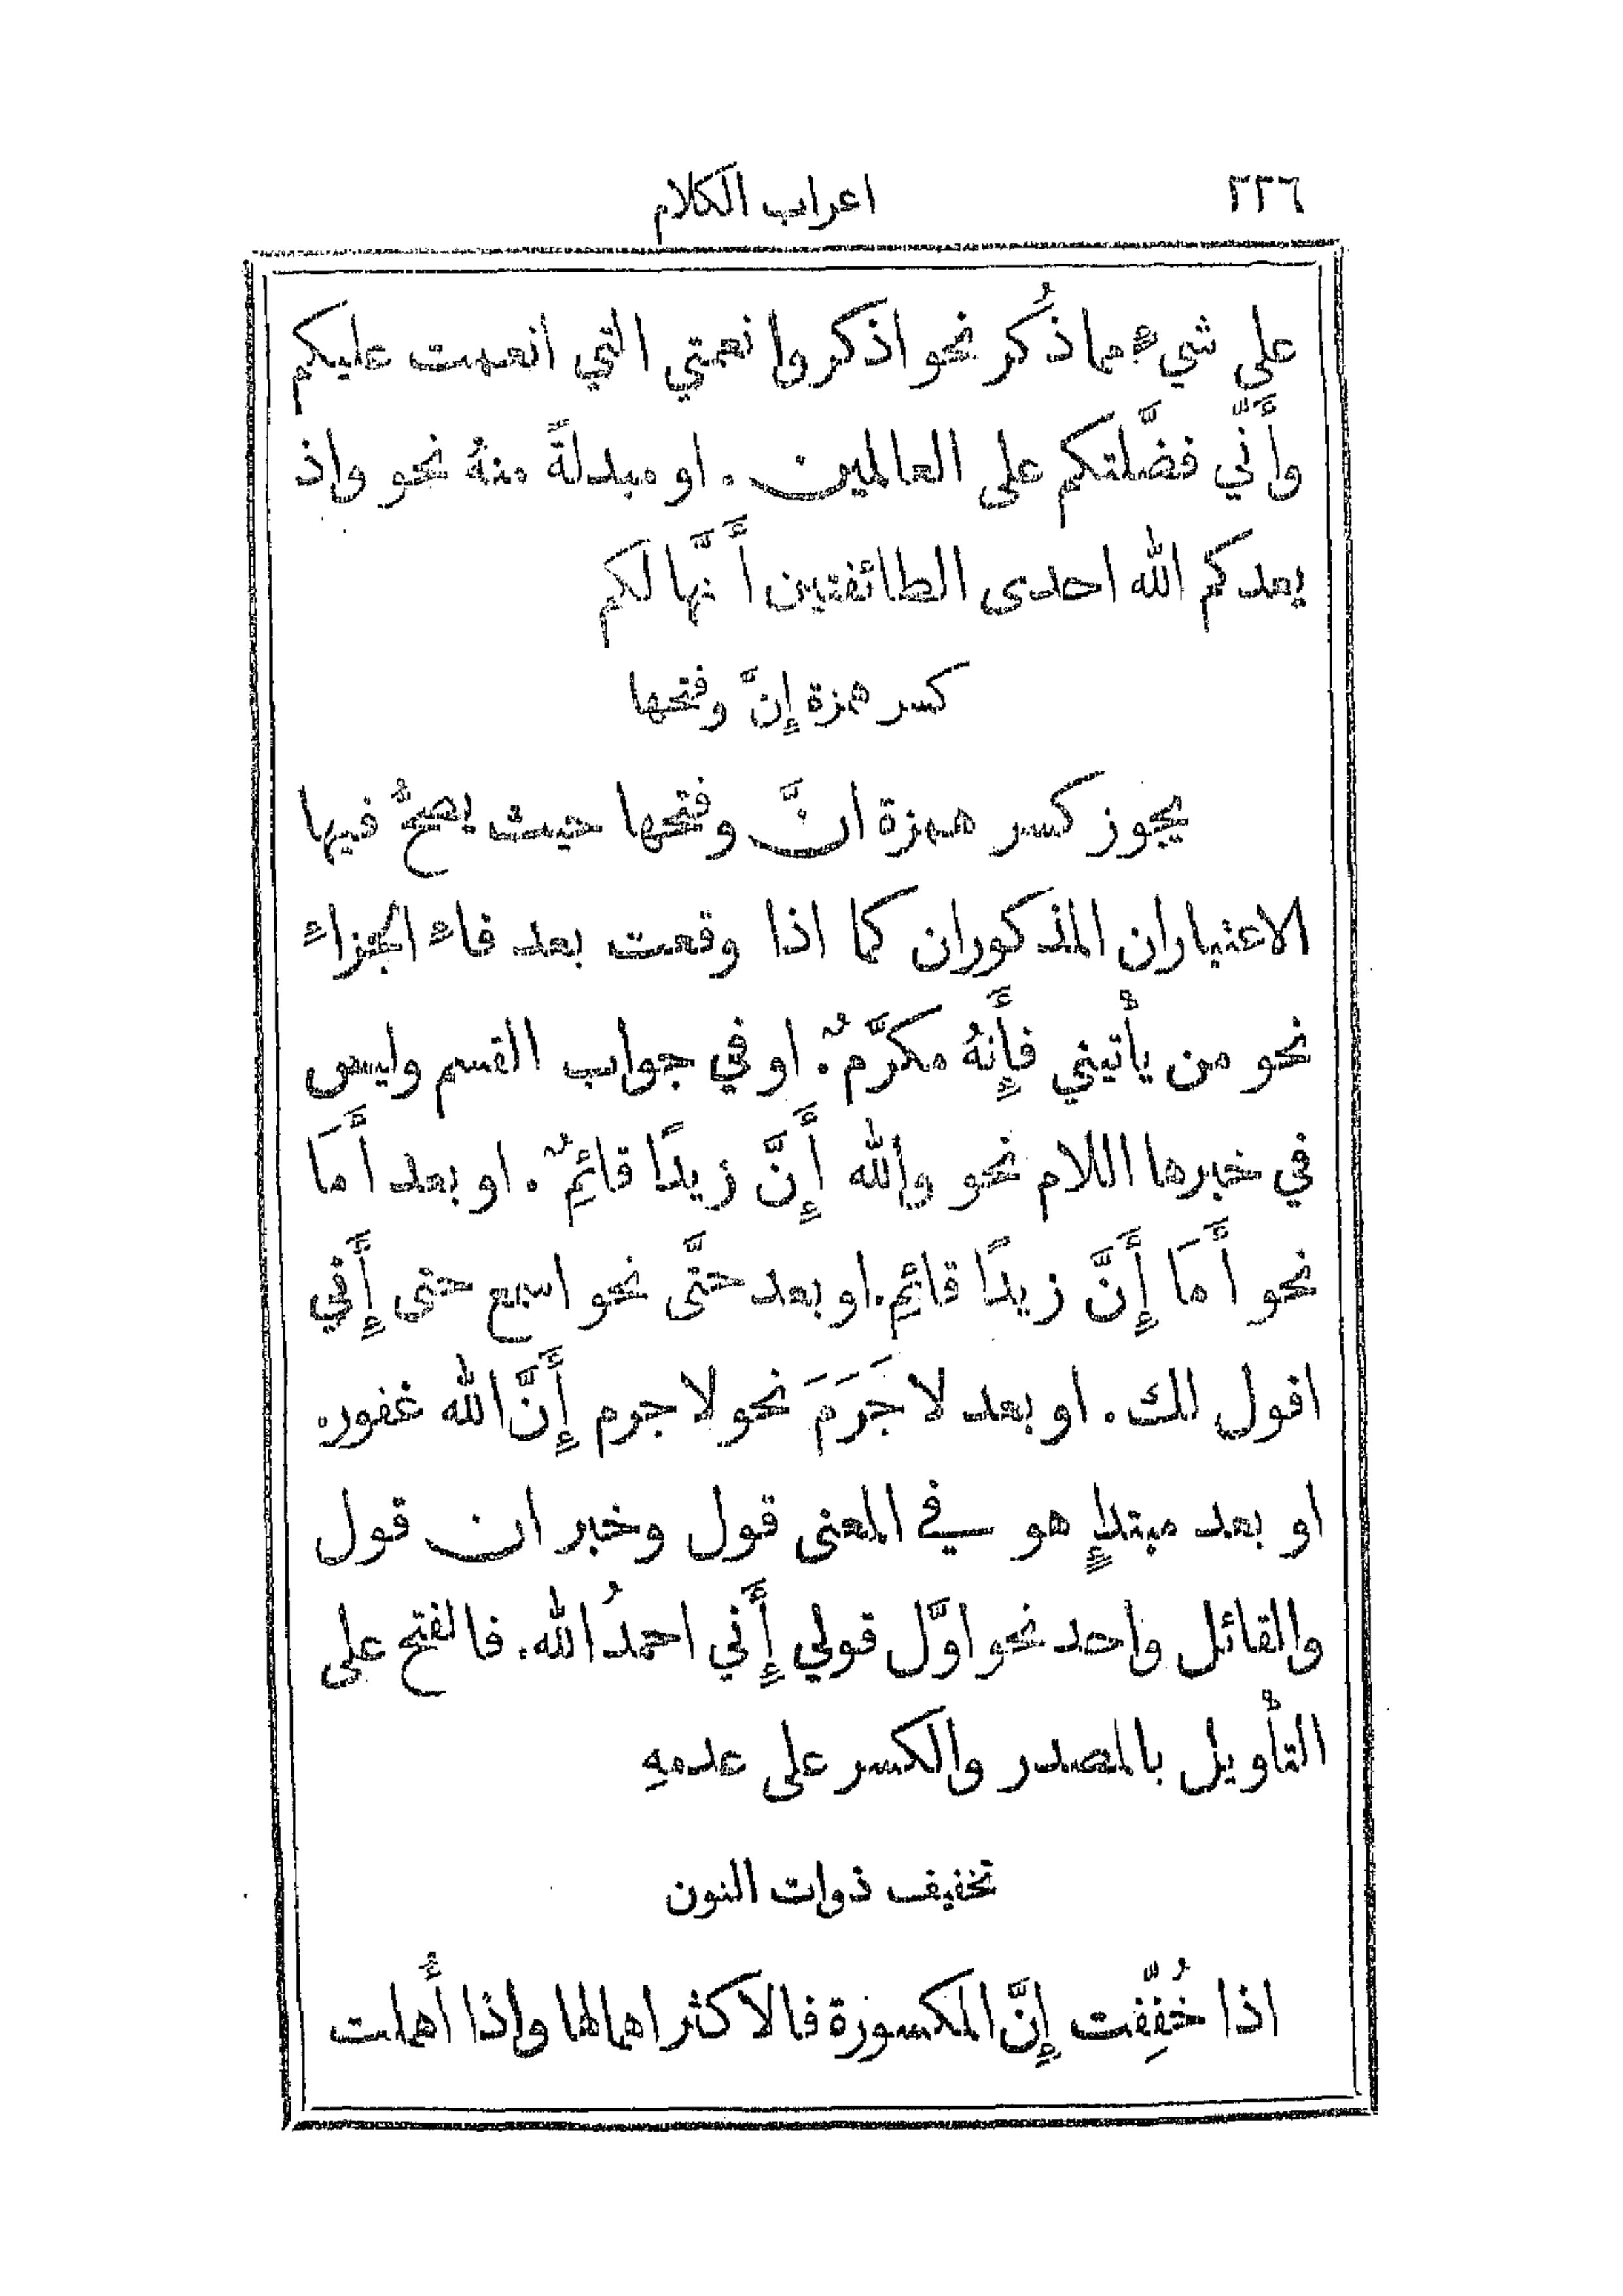 ٢٢٦ اعراب الكلام
على شيءٍ مما ذُكر نحو اذكروا نعمتي التي انعمت عليكم
وأَنّي فضَّلتكم على العالمين. او مبدلةً منهُ نحو واذ
يعدكم الله احدى الطائفتين أَنَّها لكم
كسر همزة إنَّ وفتحها
يجوز كسر همزة انَّ وفتحها حيث يصحُّ فيها
الاعتباران المذكوران كما اذا وقعت بعد فاءِ الجزاءِ
نحو من يأْتيني فأَِنهُ مكرَّمٌ. او في جواب القسم وليس
في خبرها اللام نحو والله أَِنَّ زيدًا قائمٌ. او بعد أَمَا
نحو أَمَا أَِنَّ زيدًا قائم. او بعد حتَّى نحو اسمع حتى أَِني
اقول لك. او بعد لا جَرَمَ نحو لا جرم أَِنَّ الله غفور.
او بعد مبتدإٍ هو في المعنى قول وخبر ان قول
والقائل واحد نحو اوَّل قولي أَِني احمدُ الله. فالفتح على
التأْويل بالمصدر والكسر على عدمهِ
تخفيف ذوات النون
اذا خُفِّفت إنَّ المكسورة فالاكثر اهمالها واذا أُهملت